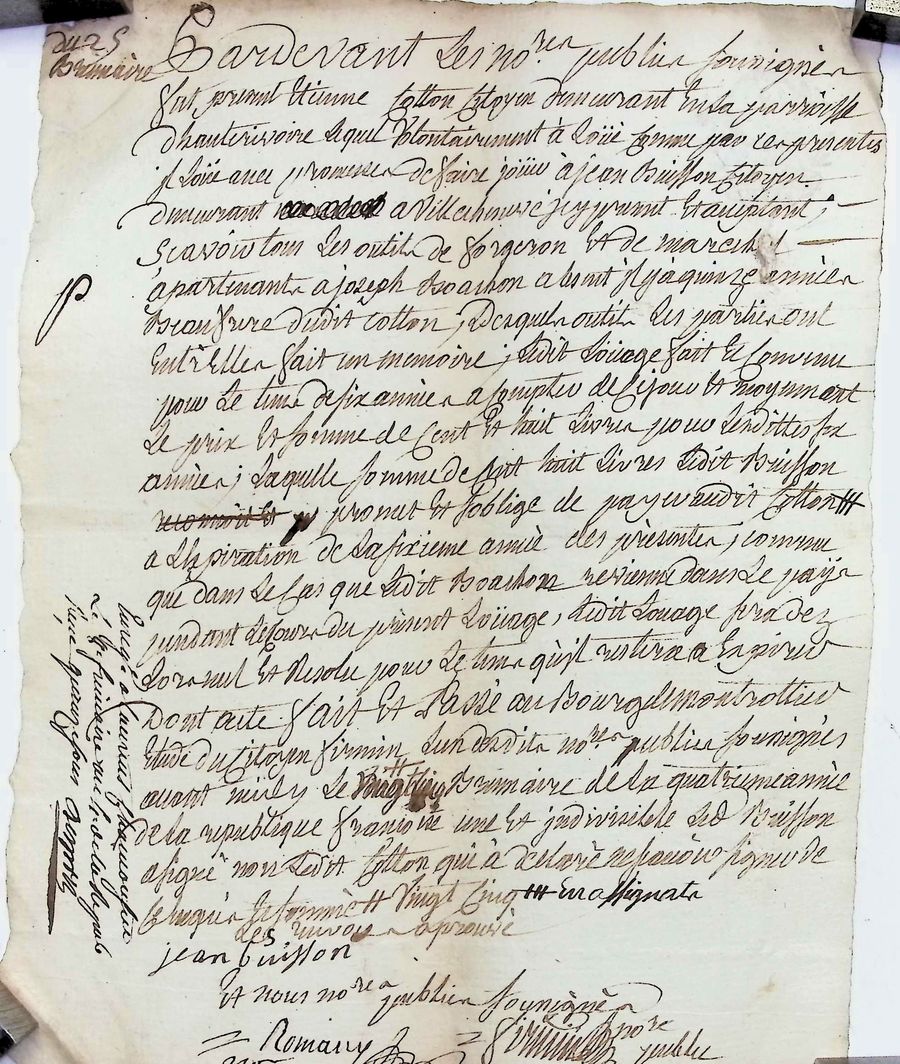 du 25
Brumaire
Pardevant Les no.res publics soussignés
fut present Etienne Cotton Citoyen demeurant En la parroisse
d'hauterivoire Lequel Volontairement à Loüé comme par ces presentes
il Loüe avec promesse de faire joüir à jean Buisson Citoyen
demeurant a Villecheneve icy present Et acceptant,
Scavoir tous Les outils de forgeron Et de marechal
apartenants a joseph Boachon absent il y a quinze années
Beaufrere dudit Cotton, Desquels outils Les parties ont
Entr'Elles fait un memoire; Ledit Loüage fait Et Convenu
pour Le tems de six années a Compter de Ce jour Et moyennant
Le prix Et somme de Cent Et huit Livres pour Lesdittes six
années; Laquelle somme de Cent huit Livres Ledit Buisson
reconnoit Et promet Et s'oblige de payer audit Cotton ttt
a L'Expiration de La sixieme année des presentes; comme
que dans Le Cas que Ledit Boachon revienne dans Le pays
pendant Le Cours du present Loüage, Ledit Loüage sera dez
Lors nul Et Resolu pour Le tems qu'il restera a Expirer
Dont acte fait Et Passé au Bourg de montrottier
Etude du Citoyen firmin L'un desdits no.res publics soussignés
avant midy Le Vingt cinq Brumaire de La quatrieme année
de La republique francoise une Et indivisible Led. Buisson
a signé non Ledit Cotton qui à declaré ne scavoir signer de
Ce requis La somme tt Vingt Cinq ttt En assignats
Les renvois aprouvé
jean buisson
Et nous no.res publics soussignés
= Romany = firmin no.re
public
Enregé a Laurent
Le frimaire an 4 de La Repub